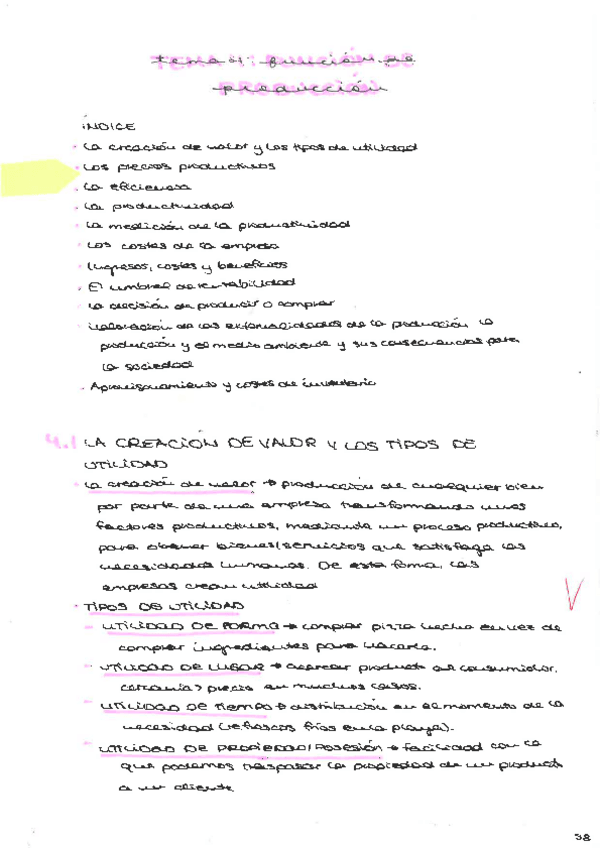 tema 4: función de
producción
ÍNDICE
· La creación de valor y los tipos de utilidad
· Los precios productivos
· La eficiencia
· La productividad
· La medición de la productividad
· Los costes de la empresa
· Ingresos, costes y beneficios
· El umbral de rentabilidad
· La decisión de producir o comprar
· Valoración de las externalidades de la producción. La
producción y el medio ambiente y sus consecuencias para
la sociedad
· Aprovisionamiento y costes de inventario
4.1 LA CREACIÓN DE VALOR Y LOS TIPOS DE
UTILIDAD
· La creación de valor → producción de cualquier bien
por parte de una empresa transformando unos
factores productivos, mediante un proceso productivo,
para obtener bienes/servicios que satisfaga las
necesidades humanas. De esta forma, las
empresas crean utilidad
V
· TIPOS DE UTILIDAD
- UTILIDAD DE FORMA → comprar pizza hecha en vez de
comprar ingredientes para hacerla.
- UTILIDAD DE LUGAR → acercar producto al consumidor.
cercanía > precio en muchos casos.
- UTILIDAD DE TIEMPO → distribución en el momento de la
necesidad (refrescos fríos en la playa).
- UTILIDAD DE PROPIEDAD/POSESIÓN → facilidad con la
que podemos traspasar la propiedad de un producto
a un cliente
38